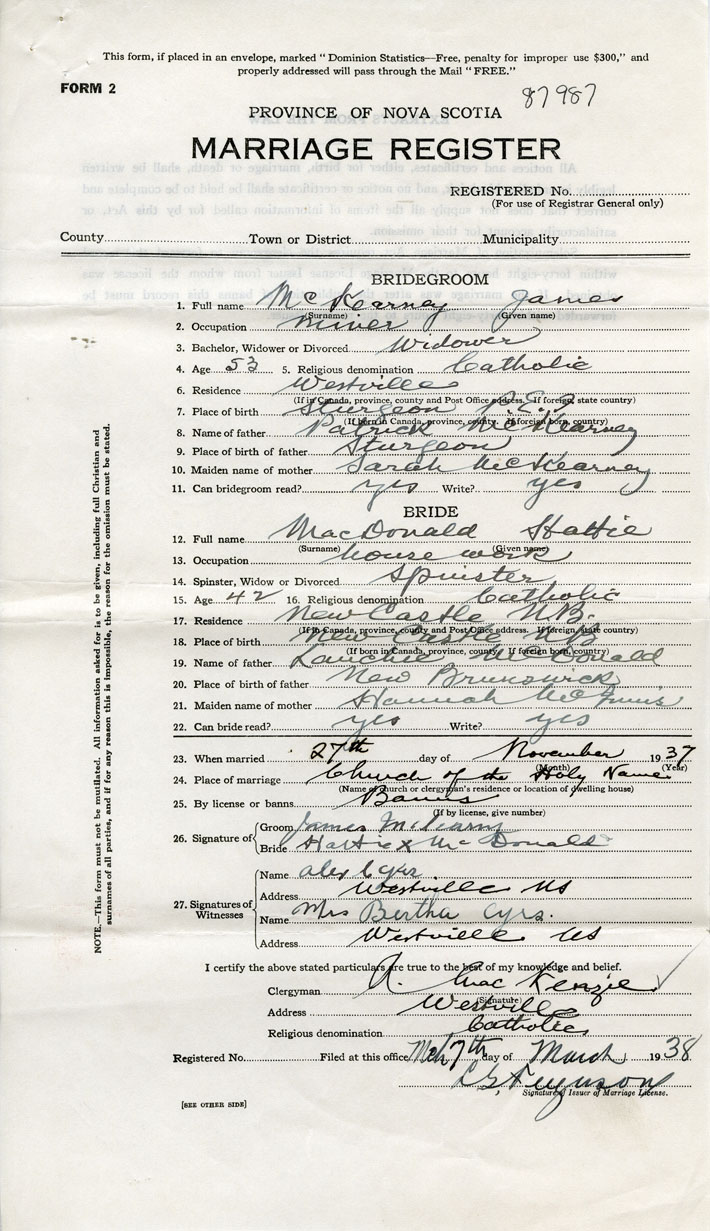 This form, if placed in an envelope, marked "Dominion Statistics—Free, penalty for improper use $300," and
properly addressed will pass through the Mail "FREE."
FORM 2
87987
PROVINCE OF NOVA SCOTIA
MARRIAGE REGISTER
REGISTERED No.
(For use of Registrar General only)
County Town or District Municipality
BRIDEGROOM
1. Full name McKearney James
(Surname) (Given name)
2. Occupation miner
3. Bachelor, Widower or Divorced Widower
4. Age 53 5. Religious denomination Catholic
6. Residence Westville
(If in Canada, province, county and Post Office address. If foreign, state country)
7. Place of birth Sturgeon P.E.I
(If born in Canada, province, county. If foreign born, country)
8. Name of father Patrick McKearney
9. Place of birth of father Sturgeon
10. Maiden name of mother Sarah McKearney
11. Can bridegroom read? yes Write? yes
BRIDE
12. Full name MacDonald Hattie
(Surname) (Given name)
13. Occupation house work
14. Spinster, Widow or Divorced Spinster
15. Age 42 16. Religious denomination Catholic
17. Residence New Castle N.B.
(If in Canada, province, county and Post Office address. If foreign, state country)
18. Place of birth New Castle N.B
(If born in Canada, province, county. If foreign born, country)
19. Name of father Lauchie McDonald
20. Place of birth of father New Brunswick
21. Maiden name of mother Hannah McInnis
22. Can bride read? yes Write? yes
23. When married 27th day of November 1937
(Month) (Year)
24. Place of marriage Church of the Holy Name
(Name of church or clergyman's residence or location of dwelling house)
25. By license or banns Banns
(If by license, give number)
26. Signature of Groom James McKearny
Bride Hattie x McDonald
27. Signatures of Witnesses
Name Alex Cyrs
Address Westville NS
Name Mrs Bertha Cyrs.
Address Westville NS
I certify the above stated particulars are true to the best of my knowledge and belief.
Clergyman A. MacKenzie
(Signature)
Address Westville
Religious denomination Catholic
Registered No. Filed at this office Mch 7th day of March 1938
Ferguson
Signature of Issuer of Marriage License.
[SEE OTHER SIDE]
NOTE.—This form must not be mutilated. All information asked for is to be given, including full Christian and
surnames of all parties, and if for any reason this is impossible, the reason for the omission must be stated.